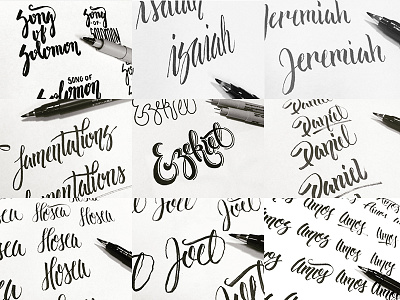 Song
of
Solomon
Song
-OF-
SOLOMON
SONG OF
Solomon
Isaiah
isaiah
Jeremiah
Jeremiah
Lamentations
Lamentations
Ezekiel
Ezekiel
Daniel
Daniel
Daniel
Daniel
Hosea
Hosea
Hosea
Hosea
Hosea
Hosea
Joel
Joel
Joel
Amos
Amos
Amos
Amos
Amos
Amos
Amos
Amos
Amos
Amos
Amos